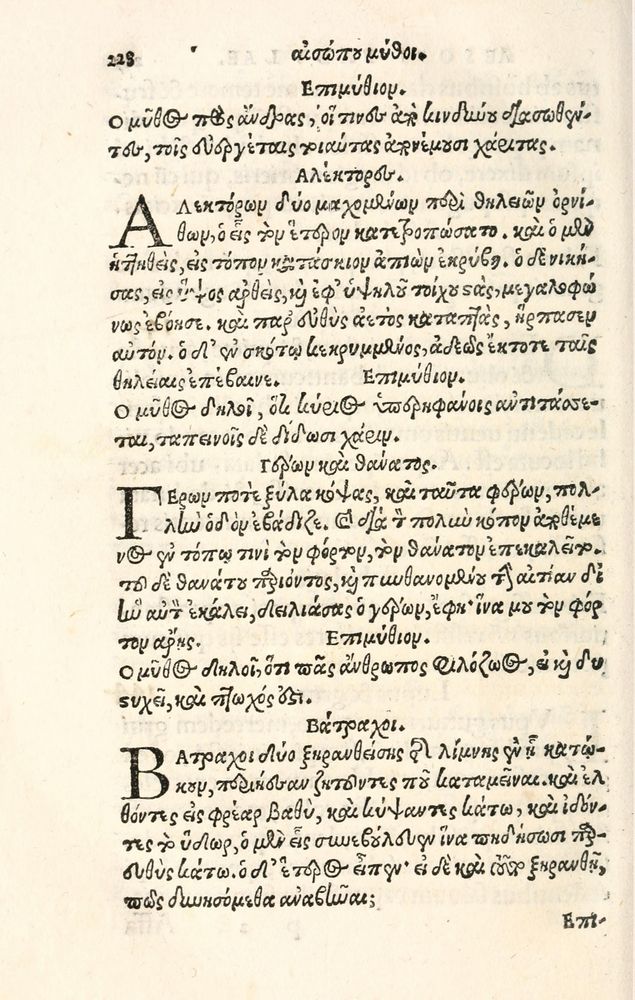 228 αἰσώπου μῦθοι.
Επιμύθιον.
Ο μῦθος πρὸς ἄνδρας, οἵ τινες ἀπὸ κινδύνου διασωθέν-
τες, τοῖς εὐεργέταις τοιαύτας ἀπονέμουσι χάριτας.
Αλέκτορες.
ΑΛεκτόρων δύο μαχομένων περὶ θηλειῶν ὀρνί-
θων, ὁ εἷς τὸν ἕτερον κατετροπώσατο. καὶ ὁ μὲν
ἡττηθεὶς, εἰς τόπον κατάσκιον ἀπιὼν ἐκρύβη. ὁ δὲ νική-
σας, εἰς ὕψος ἀρθεὶς, καὶ ἐφ' ὑψηλοῦ τοίχου στὰς, μεγαλοφώ
νως ἐβόησε. καὶ παρευθὺς ἀετὸς καταπτὰς, ἥρπασεν
αὐτόν. ὁ δ' ἐν σκότῳ κεκρυμμένος, ἀδεῶς ἔκτοτε ταῖς
θηλείαις ἐπέβαινε. Επιμύθιον.
Ο μῦθος δηλοῖ, ὅτι κύριος ὑπερηφάνοις ἀντιτάσσε-
ται, ταπεινοῖς δὲ δίδωσι χάριν.
Γέρων καὶ θάνατος.
ΓΕρων ποτὲ ξύλα κόψας, καὶ ταῦτα φέρων, πολ-
λὴν ὁδὸν ἐβάδιζε. καὶ διὰ τὸν πολὺν κόπον ἀποθέμε
νος ἐν τόπῳ τινὶ τὸν φόρτον, τὸν θάνατον ἐπεκαλεῖτο.
τοῦ δὲ θανάτου παριόντος, καὶ πυνθανομένου τὴν αἰτίαν δι'
ἣν αὐτὸν ἐκάλει, δειλιάσας ὁ γέρων, ἔφη· ἵνα μου τὸν φόρ
τον ἄρῃς. Επιμύθιον.
Ο μῦθος δηλοῖ, ὅτι πᾶς ἄνθρωπος φιλόζωος, εἰ καὶ δυ
στυχεῖ, καὶ πτωχός ἐστι.
Βάτραχοι.
ΒΑτραχοι δύο ξηρανθείσης τῆς λίμνης ἐν ᾗ κατῴ-
κουν, περιῄεσαν ζητοῦντες ποῦ καταμεῖναι. καὶ ἐλ
θόντες εἰς φρέαρ βαθὺ, καὶ κύψαντες κάτω, καὶ ἰδόν-
τες τὸ ὕδωρ, ὁ μὲν εἷς συνεβούλευεν ἵνα πηδήσωσι παρ-
ευθὺς κάτω. ὁ δ' ἕτερος εἶπεν· εἰ δὲ καὶ ὧδε ξηρανθῇ,
πῶς δυνησόμεθα ἀναβῆναι;
Επι-